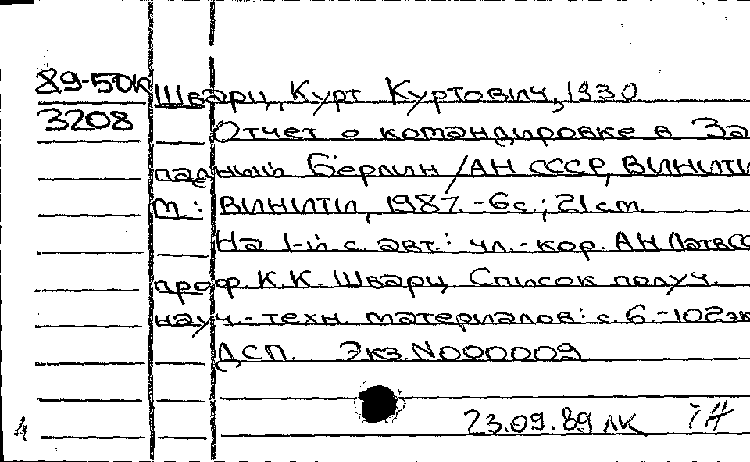 89-50К Шварц, Курт Куртович, 1930
3208 Отчет о командировке в За
падный Берлин / АН СССР, ВИНИТИ
М.: ВИНИТИ, 1987. - 6 с.; 21 см.
На 1-й с. авт.: чл.-кор. АН ЛатвСС
проф. К.К. Шварц. Список получ.
науч.-техн. материалов: с. 6. - 102 эк
ДСП. Экз. N000009
23.09.89 ЛК